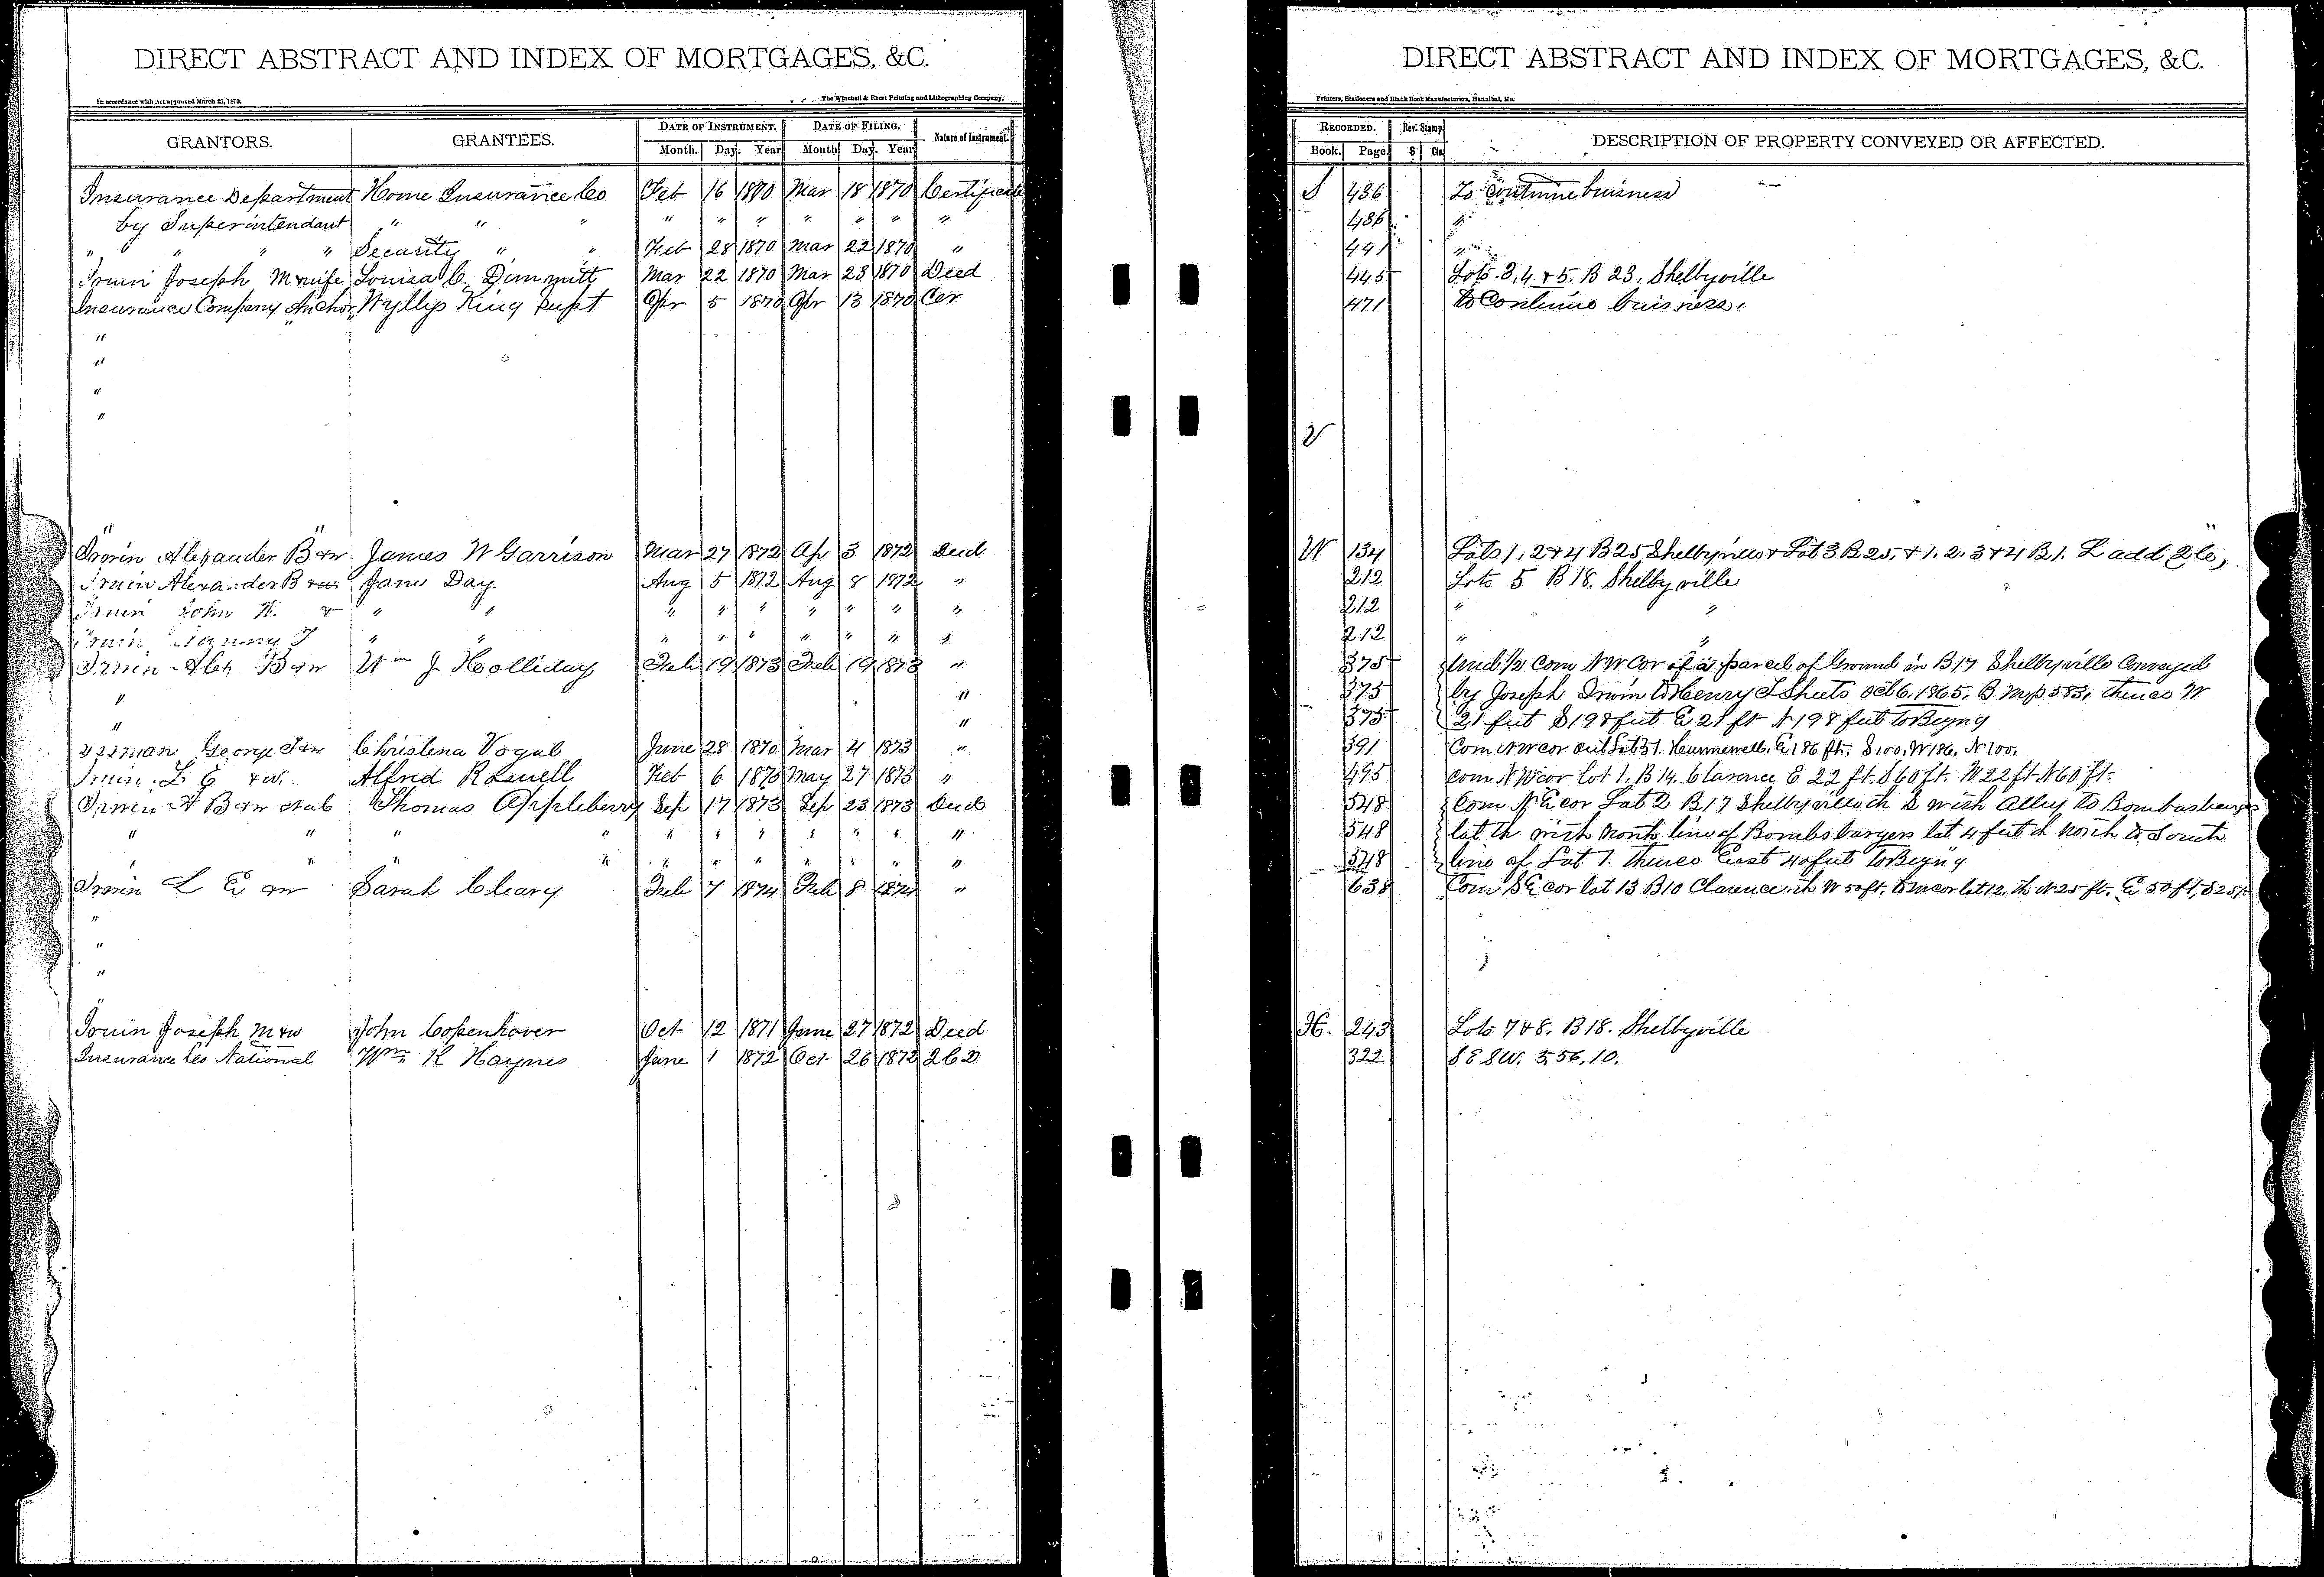 DIRECT ABSTRACT AND INDEX OF MORTGAGES, &C.
In accordance with Act approved March 25, 1870.
The Winchell & Ebert Printing and Lithographing Company,
GRANTORS. GRANTEES. DATE OF INSTRUMENT. DATE OF FILING. Nature of Instrument.
Month. Day. Year Month Day. Year
Insurance Department Home Insurance Co Feb 16 1870 Mar 18 1870 Certificate
by Superintendant " " " " " " " " " "
" " " " Security " " Feb 28 1870 Mar 22 1870 "
Irwin Joseph M & wife Louisa C. Dimmitt Mar 22 1870 Mar 23 1870 Deed
Insurance Company Anchor Wyllys King Supt Apr 5 1870 Apr 13 1870 Cer
"
"
"
"
" "
Irwin Alexander B & w James W Garrison Mar 27 1872 Ap 3 1872 Deed
Irwin Alexander B & w Jane Day Aug 5 1872 Aug 8 1872 "
Irwin John & " " " " " " " " "
Irwin " " " " " " " " "
Irwin Alex B & w Wm J Holliday Feb 19 1873 Feb 19 1873 "
" "
" "
George & w Christena Vogal June 28 1870 Mar 4 1873 "
Irwin L E & w. Alfred Rosnell Feb 6 1873 May 27 1873 "
Irwin A B & w et al Thomas Appleberry Sep 17 1873 Sep 23 1873 Deed
" " " " " " " " " " "
" " " " " " " " " " "
Irwin L E & w Sarah Cleary Feb 7 1874 Feb 8 1874 "
"
"
"
"
Irwin Joseph M & w John Copenhaver Oct 12 1871 June 27 1872 Deed
Insurance Co National Wm K Haynes June 1 1872 Oct 26 1872 2 C D
DIRECT ABSTRACT AND INDEX OF MORTGAGES, &C.
Printers, Stationers and Blank Book Manufacturers, Hannibal, Mo.
RECORDED. Rev. Stamp DESCRIPTION OF PROPERTY CONVEYED OR AFFECTED.
Book. Page. $ Cts
S 436 To Continue buisness
436 "
441 "
445 Lots 3, 4 & 5. B 23, Shelbyville
471 to Continue buisness.
V
W 134 Lots 1, 2 & 4 B 25 Shelbyville & Lot 3 B 25, & 1. 2. 3 & 4 B 1. L add
212 Lots 5 B 18. Shelbyville
212 " "
212 " "
375 Und 1/2 Com NW Cor of a parcel of Ground in B 17 Shelbyville Conveyed
375 by Joseph Irwin to Henry J Sheets Oct 6. 1865, B M p 583, thence W
375 21 feet S 198 feet E 21 ft N 198 feet to Begng
391 Com NW cor out Lot 31. Hunnewell, E 186 ft. S 100, W 186, N 100.
495 com NW cor lot 1, B 14. Clarence E 22 ft. S 60 ft. W 22 ft N 60 ft.
548 Com N E cor Lot 2 B 17 Shelbyville th S with Alley to Bombasbarger
548 lot th with North line of Bombsbargers lot 4 feet th North to South
548 line of Lot 1. Thence East 40 feet to Begng
638 Com S E cor lot 13 B 10 Clarence, th W 50 ft. to SW cor lot 12, th N 25 ft. E 50 ft, S 25 ft
H. 243 Lots 7 & 8. B 18. Shelbyville
322 S E SW. 5, 56, 10.